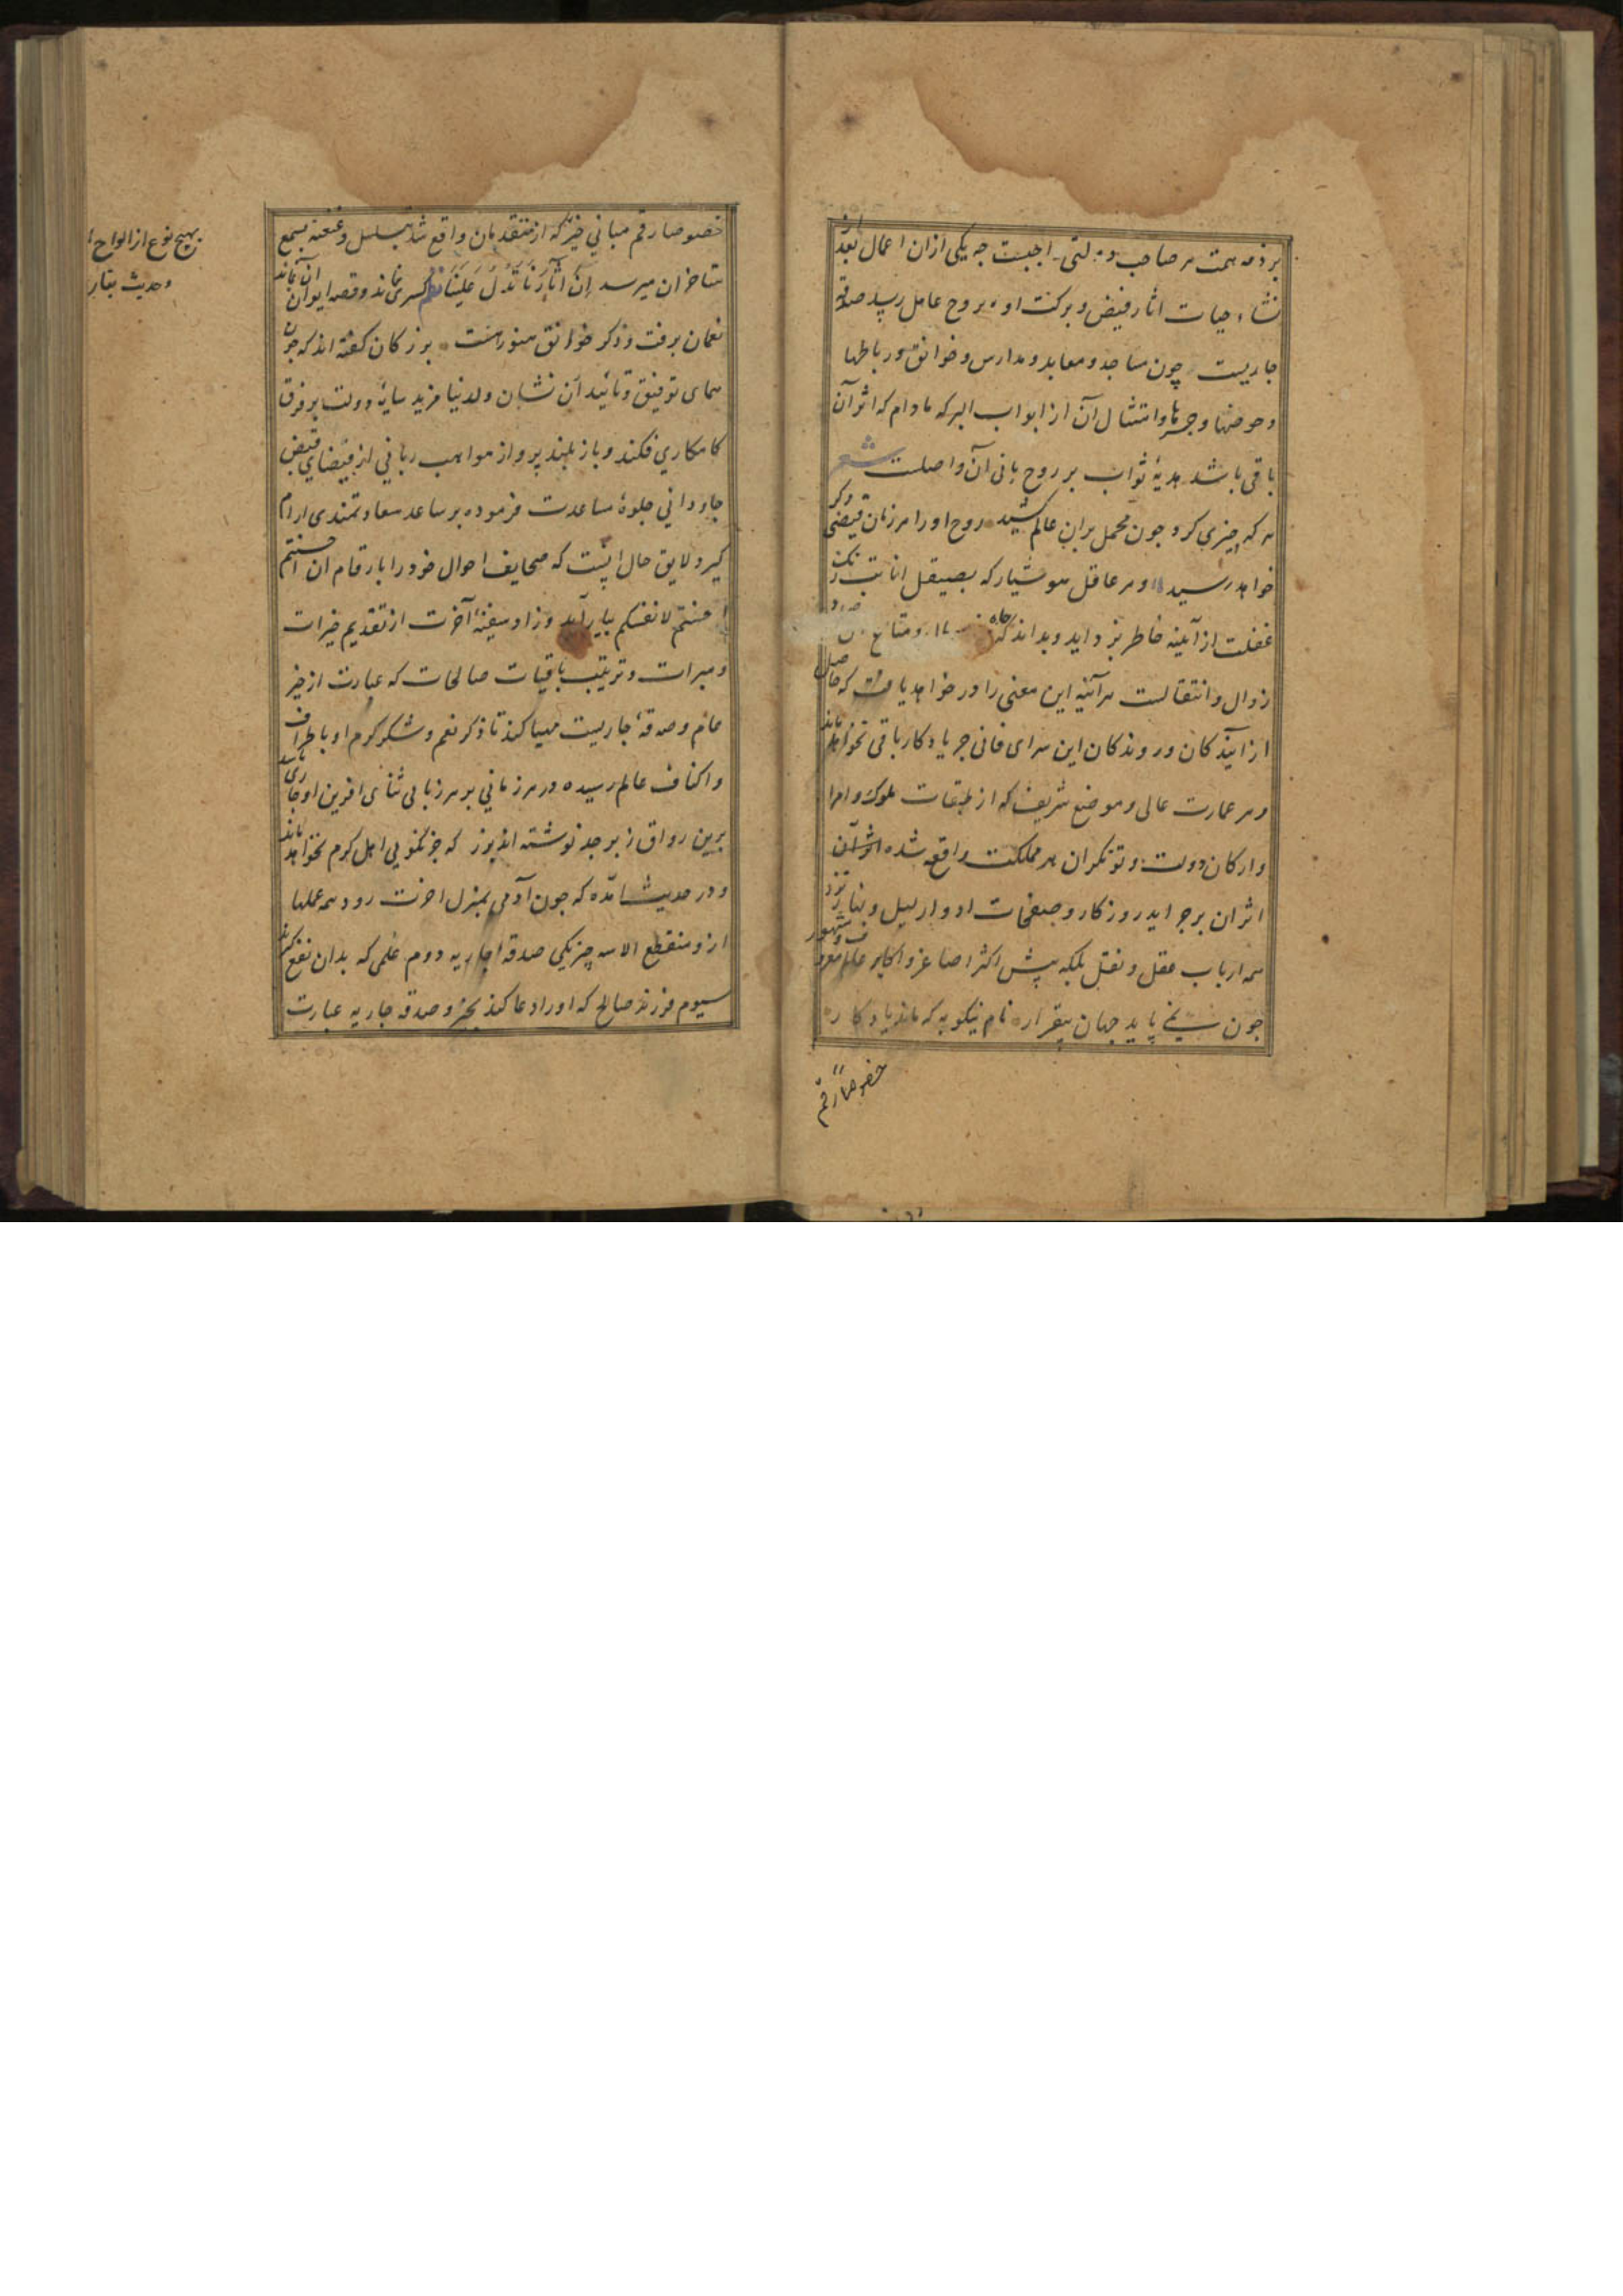 بر ذمه همت هر صاحب دولتی واجبست چه یکی ازان اعمال بعد از
نشاء حیات اثار فیض و برکت او بروح عامل رسد صدقه
جاریست چون مساجد و معابد و مدارس و خوانق و رباطها
و حوضها و جسرها و امتثال آن از ابواب البر که مادام که اثر آن
باقی باشد هدیهٔ ثواب بر روح بانی آن واصلست شعر
هر که چیزی کرد چون محمل بران عالم کشید روح او را هر زمان فیضی دگر
خواهد رسید و هر عاقل هوشیار که بصیقل انابت زنک
غفلت از آیینه خاطر بزداید و بداند که جاه و متاع
زوال و انتقالست هر آینه این معنی را در خواهد یافت که حاصل
از آیندکان و روندکان این سرای فانی جز یادکار باقی نخواهد ماند
و هر عمارت عالی و موضع شریف که از طبقات ملوک و امرا
و ارکان دولت و توانکران هر مملکت واقع شده
اثر آن بر جراید روزکار و صفحات ادوار لیل و نهار نزد
همه ارباب عقل و نقل بلکه پیش اکثر اصاغر و اکابر عالم معروف و مشهور
چون نمی پاید جهان بیقرار نام نیکو به که ماند یادکار
خصوصاً رقم
خصوصا رقم مبانی خیر که از متقدمان واقع شد مسلسل و عنعنه بسمع
متاخران میرسد اِنَّ اٰثارَنا تَدُلُّ عَلَینا نظم کسری نماند و قصه ایوان آن بماند
نعمان برفت و ذکر خوانق هنوز هست بزرکان کفته اند که چون
همای توفیق و تائید آن نشان ولد نیا مزید سایهٔ دولت بر فرق
کامکاری فکند و باز بلند پرواز مواهب ربانی از فیضای فیض
جاودانی جلوهٔ مساعدت فرموده بر ساعد سعادتمندی ارام
کیرد لایق حال آنست که صحایف احوال خود را بارقام ان احسنتم
احسنتم لانفسکم بیاراید و زاد سفینهٔ آخرت از تقدیم خیرات
و مبرات و ترتیب باقیات صالحات که عبارت از خیر
عام و صدقهٔ جاریست مهیا کند تا ذکر نعم و شکر کرم او باطراف
و اکناف عالم رسیده در هر زمانی بر هر زبانی ثنای افرین او جاری باشد
برین رواق زبرجد نوشته اند بزر که جز نکویی اهل کرم نخواهد ماند
و در حدیث امده که چون آدمی بمنزل اخرت رود همه عملها
ازو منقطع الا سه چیز یکی صدقهٔ جاریه دوم علمی که بدان نفع کیرند
سیوم فرزند صالح که او را دعا کند بخیر و صدقه جاریه عبارت
بهیچ نوع از الواح
و حدیث